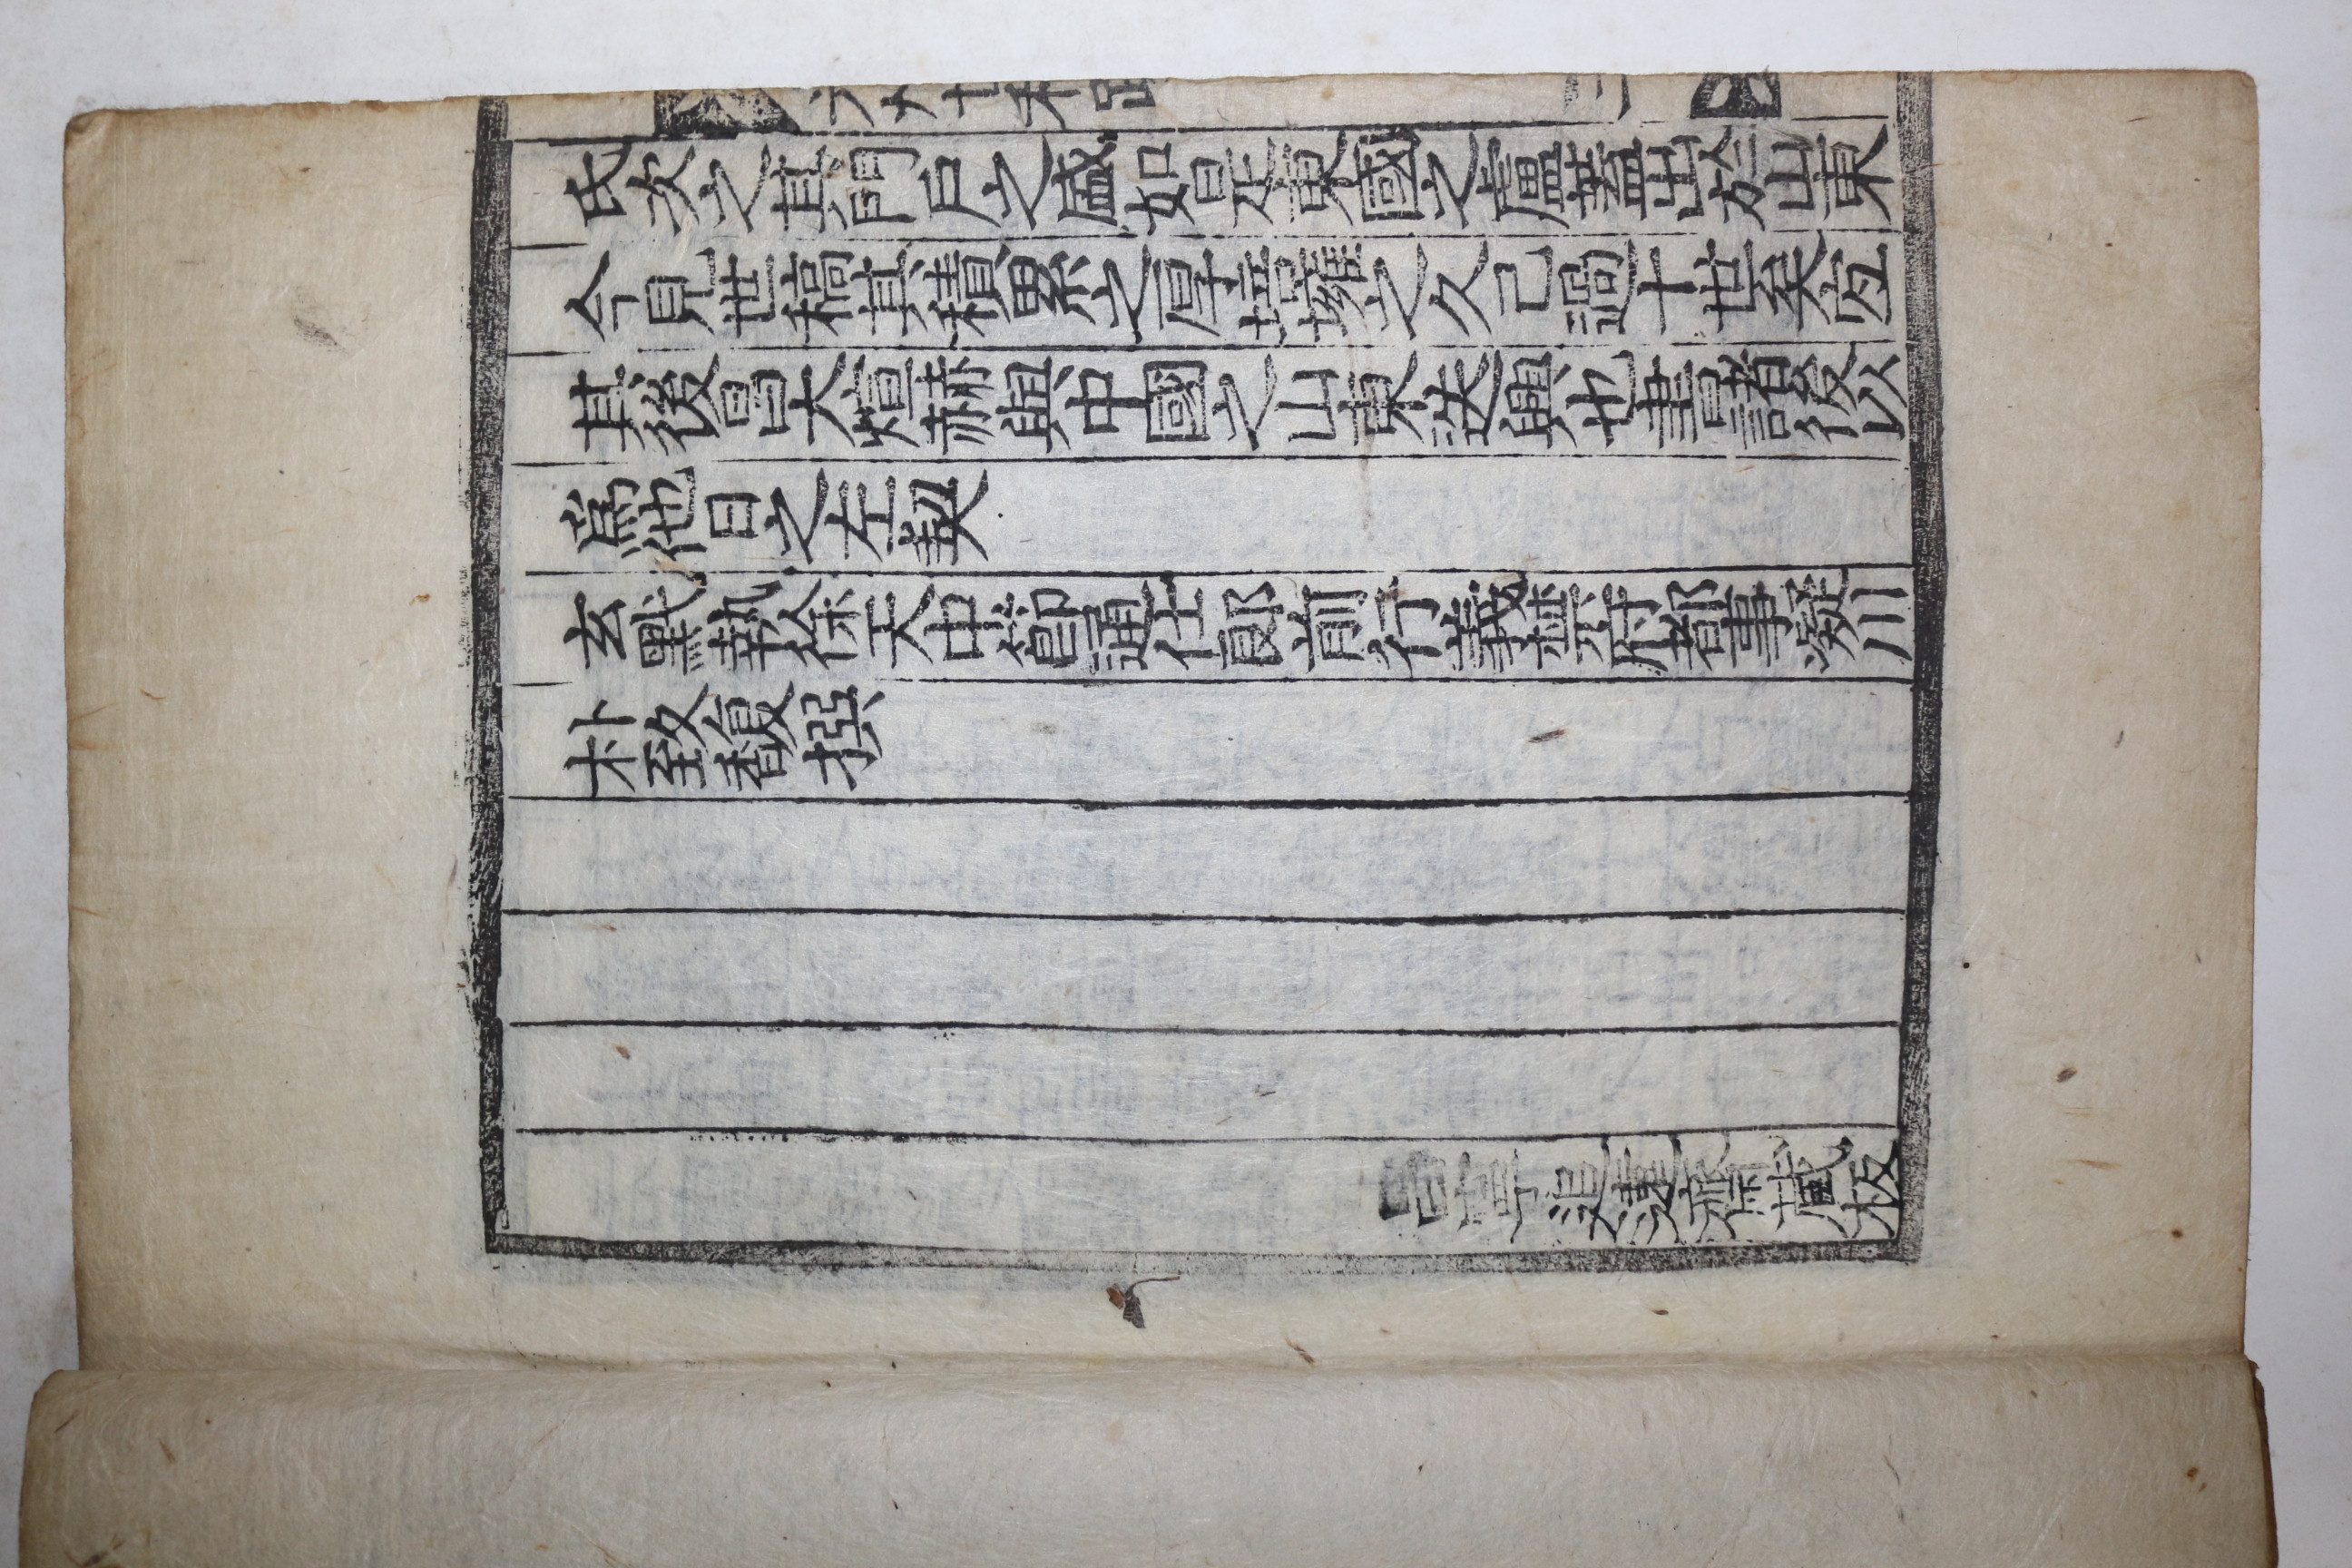 氏次之其門戶之盛如是東國之盧蓋出於山東
今見世稿其積累之厚培㙲之久己過十世矣宐
其後昌大煊赫與中國之山東迭興也書諸後以
爲他日之左契
玄黓執徐天中節通仕郞前行義禁府都事凝川
朴致馥撰
追遠齋藏板